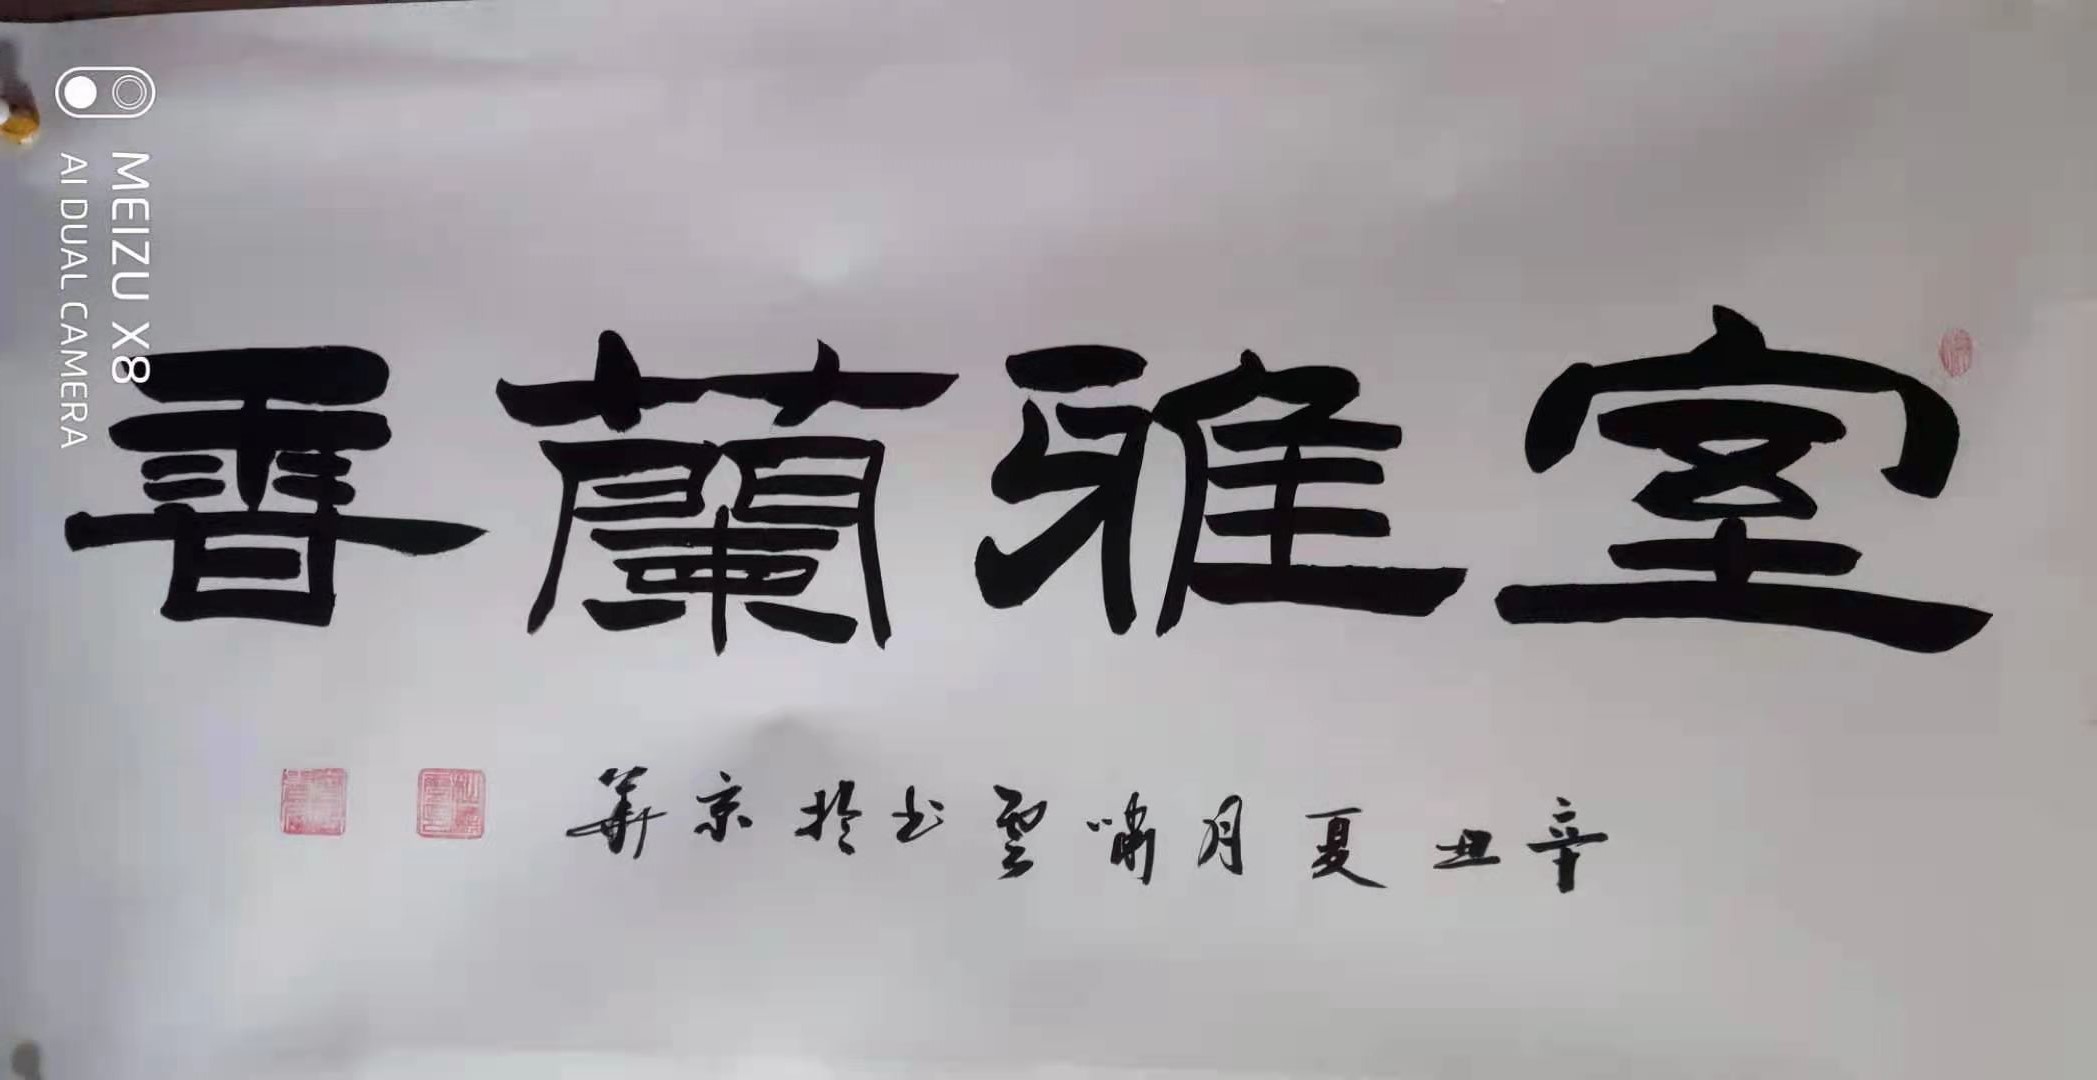 室雅蘭香
辛丑夏月嘯雲书於京華
MEIZU X8
AI DUAL CAMERA